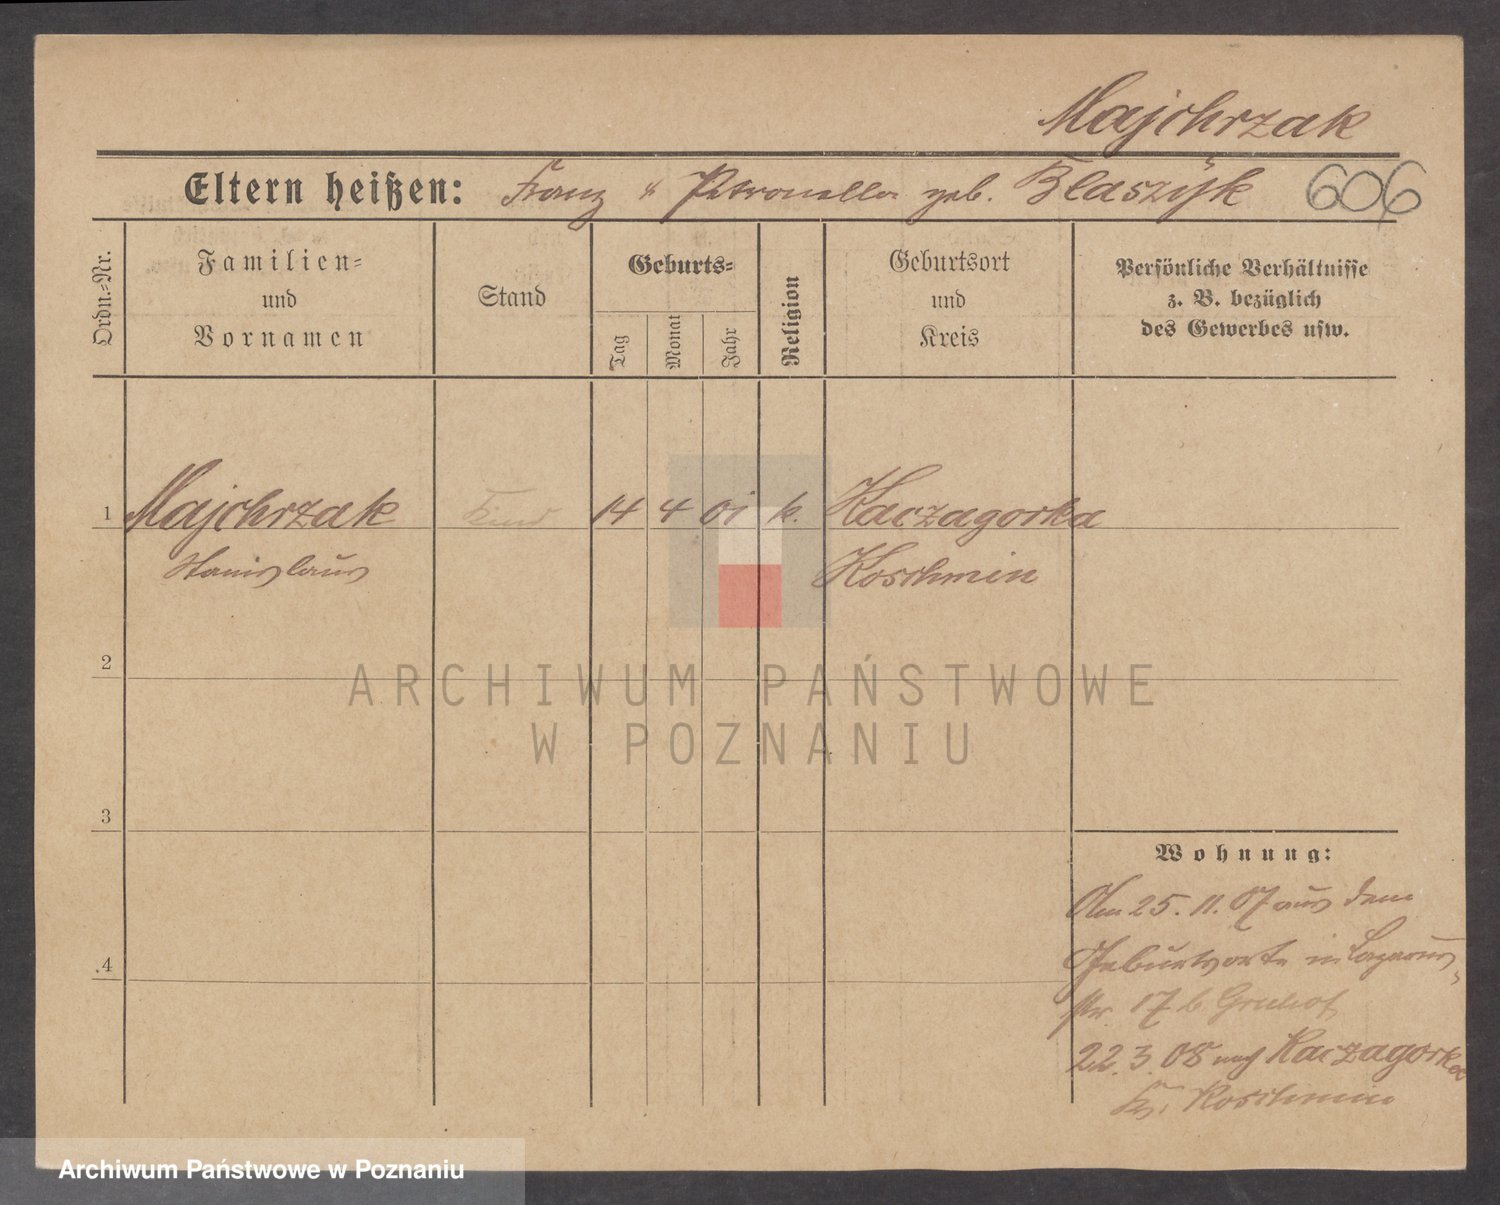 Majchrzak
Eltern heißen: Franz & Petronella geb. Blaszyk 606
Ordn.-Nr.
Familien-
und
Vornamen
Stand
Geburts-
Tag
Monat
Jahr
Religion
Geburtsort
und
Kreis
Persönliche Verhältnisse
z. B. bezüglich
des Gewerbes usw.
1 Majchrzak Kind 14 4 01 k. Kaczagorka
Stanislaus Koschmin
2
3
4
Wohnung:
Am 25. 11. 07 aus dem
Geburtsorte in Lazarus-
str. 17 b
22. 3. 08 nach Kaczagorka
Kr. Koschmin
ARCHIWUM PAŃSTWOWE
W POZNANIU
Archiwum Państwowe w Poznaniu